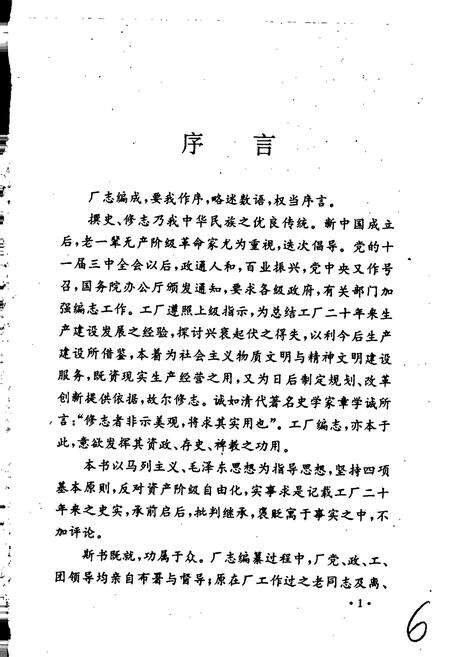 序 言
厂志编成,要我作序,略述数语,权当序言。
撰史、修志乃我中华民族之优良传统。新中国成立
后,老一辈无产阶级革命家尤为重视,迭次倡导。党的十
一届三中全会以后,政通人和,百业振兴,党中央又作号
召,国务院办公厅颁发通知,要求各级政府,有关部门加
强编志工作。工厂遵照上级指示,为总结工厂二十年来生
产建设发展之经验,探讨兴衰起伏之得失,以利今后生产
建设所借鉴,本着为社会主义物质文明与精神文明建设
服务,既资现实生产经营之用,又为日后制定规划、改革
创新提供依据,故尔修志。诚如清代著名史学家章学诚所
言:“修志者非示美观,将求其实用也”。工厂编志,亦本于
此,意欲发挥其资政、存史、裨教之功用。
本书以马列主义、毛泽东思想为指导思想,坚持四项
基本原则,反对资产阶级自由化,实事求是记载工厂二十
年来之史实,承前启后,批判继承,褒贬寓于事实之中,不
加评论。
斯书既就,功属于众。厂志编纂过程中,厂党、政、工、
团领导均亲自布署与督导;原在厂工作过之老同志及离、
·1·
6